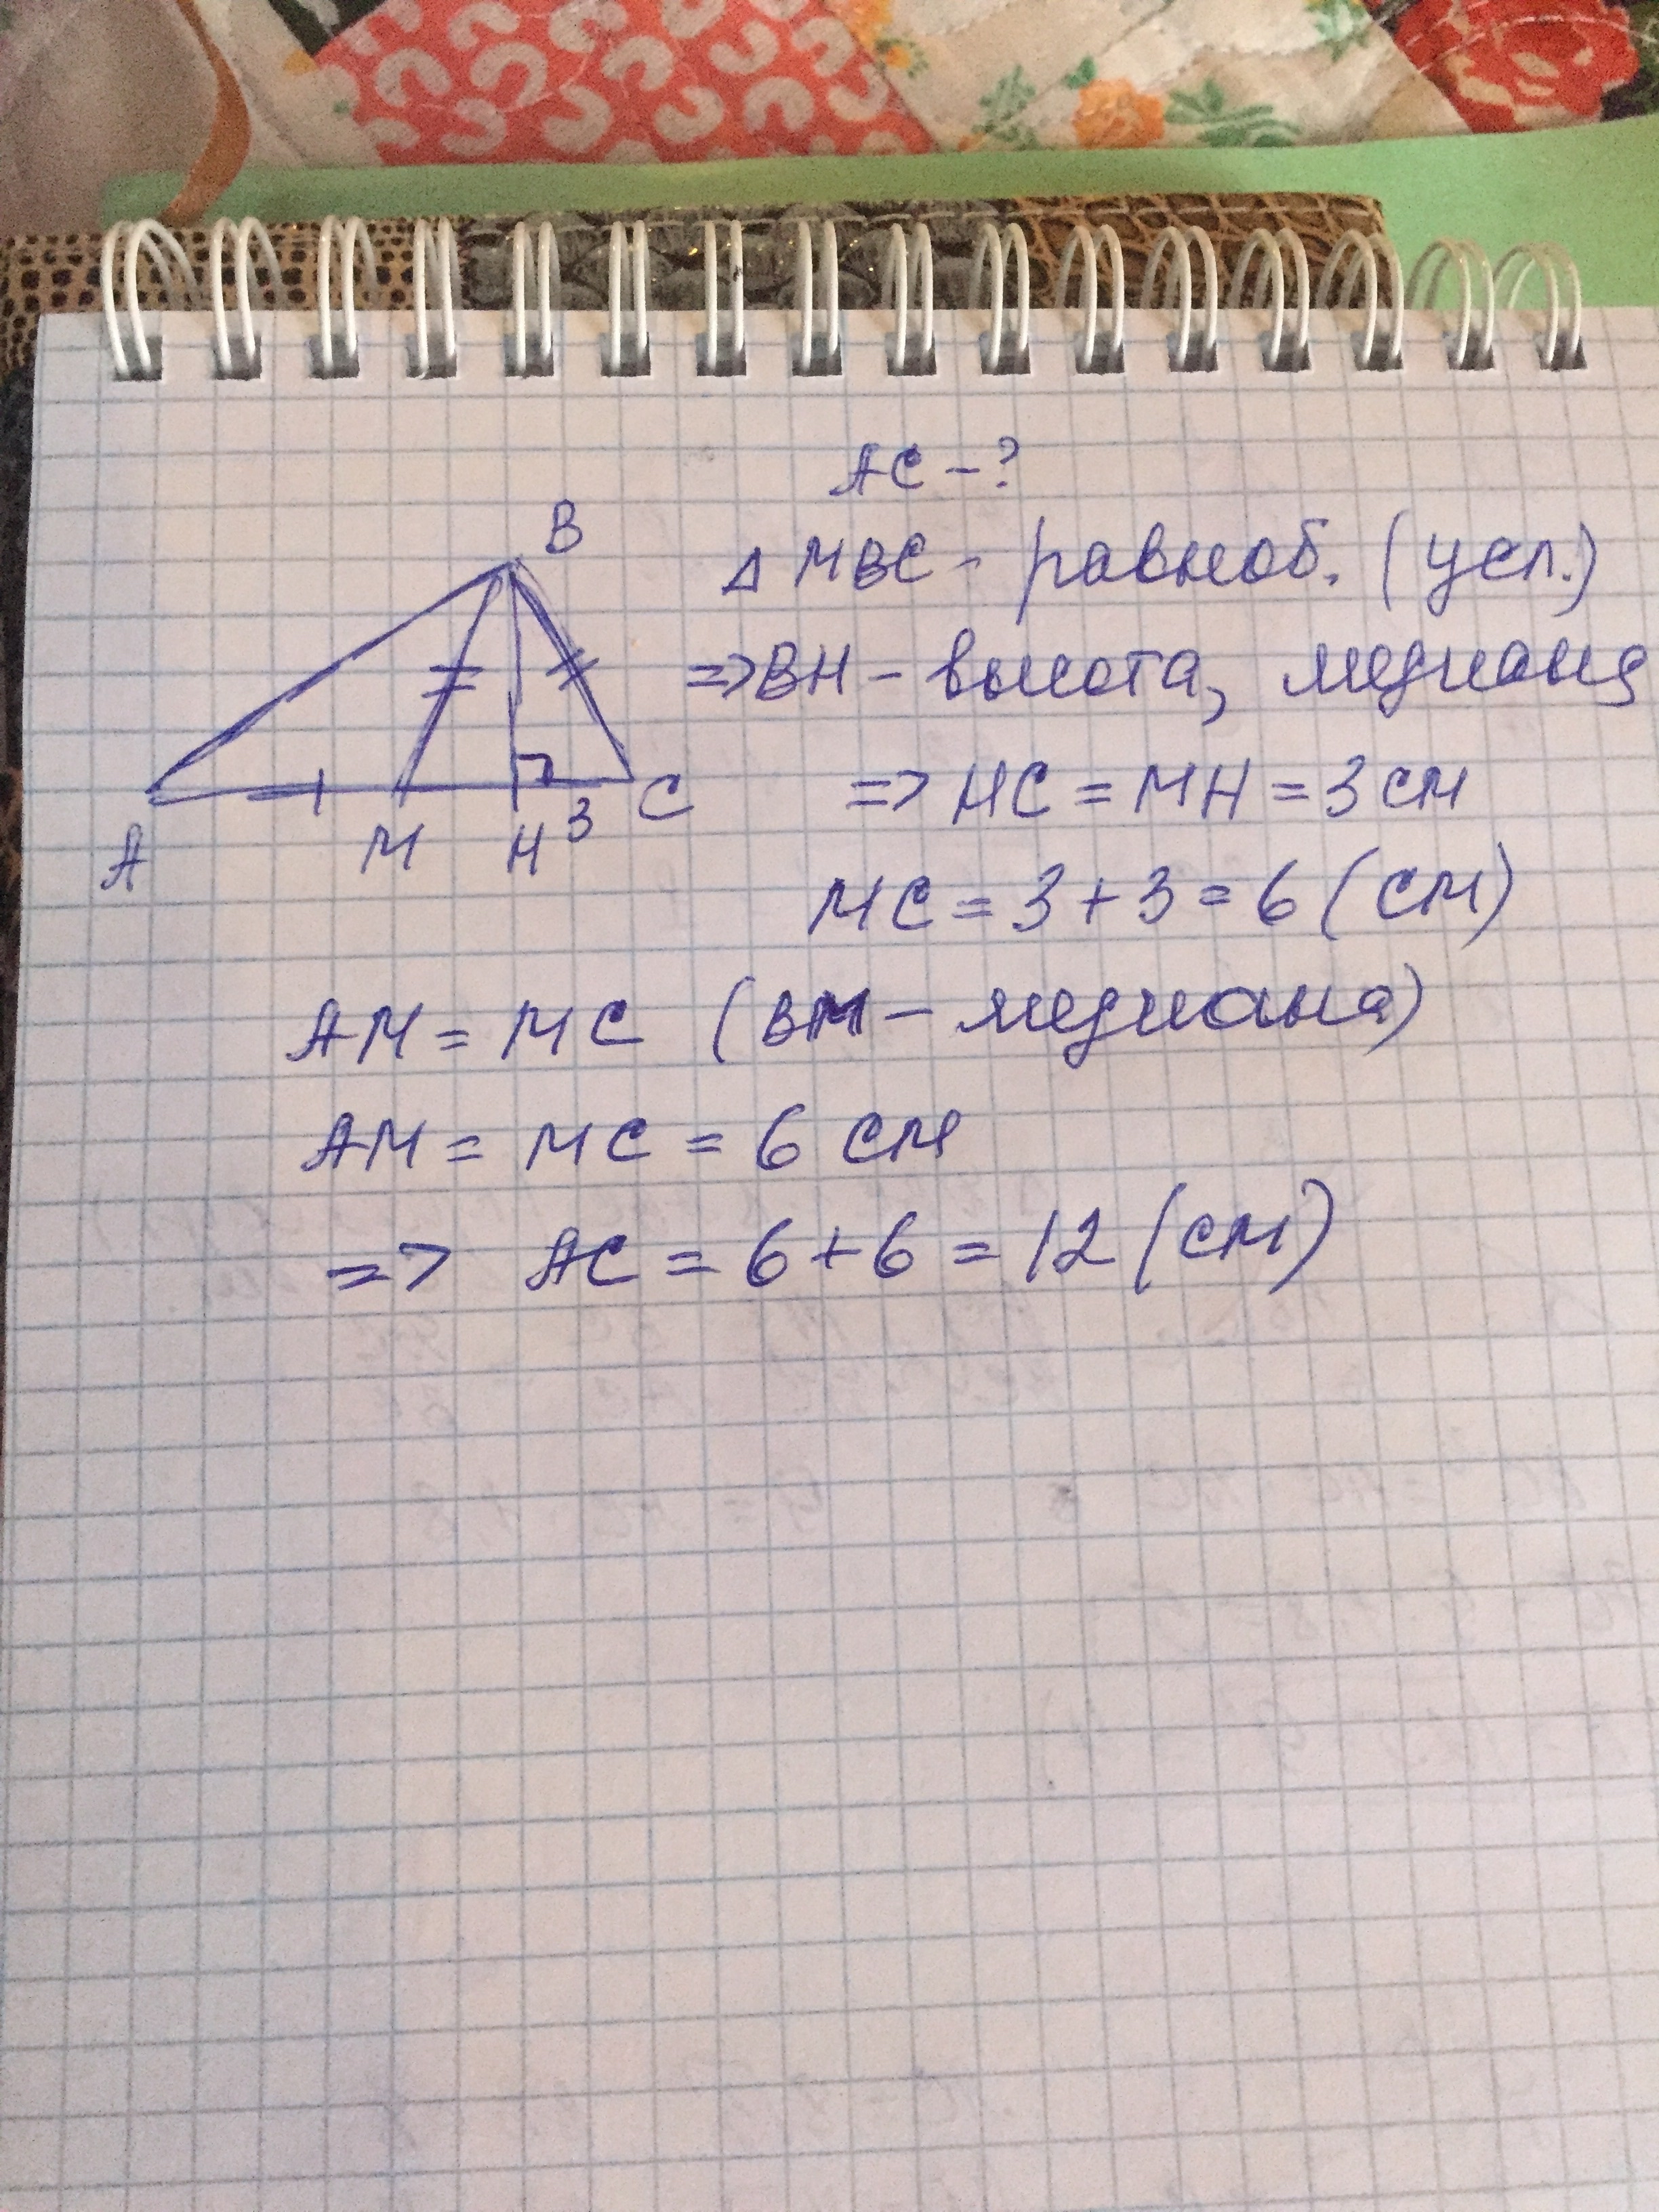 AC - ?
B
△ MBC - равноб. (усл.)
=> BH - высота, медиана
A M H 3 C
=> HC = MH = 3 см
MC = 3 + 3 = 6 (см)
AM = MC (BM - медиана)
AM = MC = 6 см
=> AC = 6 + 6 = 12 (см)